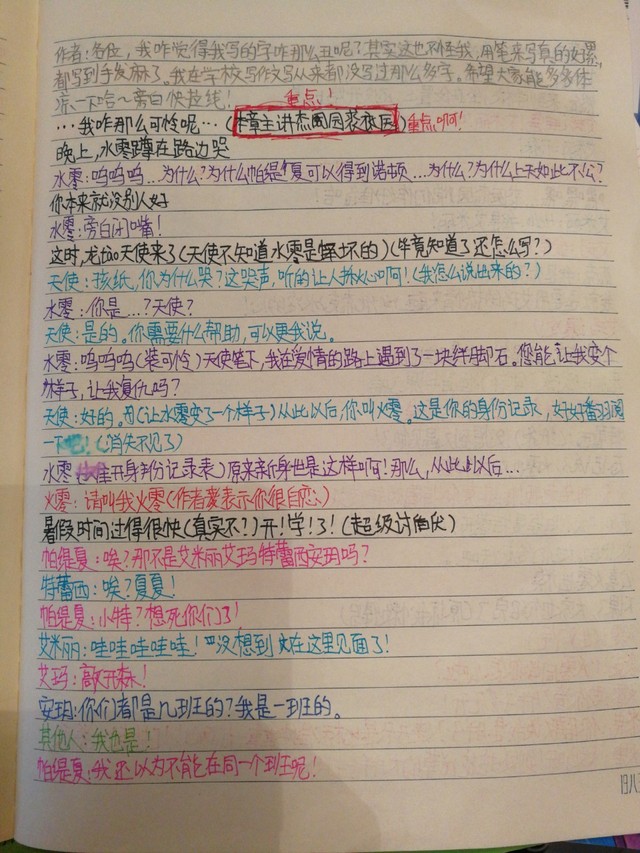 作者:各位,我咋觉得我写的字咋那么丑呢?其实这也不怪我,用笔来写真的好累,
都写到手发麻了。我在学校写作文写从来都没写过那么多字。希望大家能多多体
凉一下哈~旁白快拉线!
重点!
…我咋那么可怜呢…(本章主讲杰 因)重点啊!
晚上,水零蹲在路边哭
水零:呜呜呜…为什么?为什么帕缇夏可以得到诺顿…为什么?为什么上天如此不公?
你本来就没别人好
水零:旁白闭嘴!
这时,龙 天使来了(天使不知道水零是蛮坏的)(毕竟知道了还怎么写?)
天使:孩纸,你为什么哭?这哭声,听的让人揪心啊!(我怎么说出来的?)
水零:你是…?天使?
天使:是的。你需要什么帮助,可以跟我说。
水零:呜呜呜(装可怜)天使笔下,我在爱情的路上遇到了一块绊脚石。您能让我变个
样子,让我复仇吗?
天使:好的。(让水零变了一个样子)从此以后,你叫火零。这是你的身份记录,好好翻阅
一下吧!(消失不见了)
水零 开身份记录表)原来新身世是这样啊!那么,从此以后…
火零:请叫我火零(作者表示你很自恋)
暑假时间过得很快(真实不?)开!学!了!(超级讨厌)
帕缇夏:唉?那不是艾米丽艾玛特蕾西安玥吗?
特蕾西:唉?夏夏!
帕缇夏:小特?想死你们了!
艾米丽:哇哇哇哇哇!没想到 在这里见面了!
艾玛:敲开森!
安玥:你们都是几班的?我是一班的。
其他人:我也是!
帕缇夏:我还以为不能在同一个班呢!